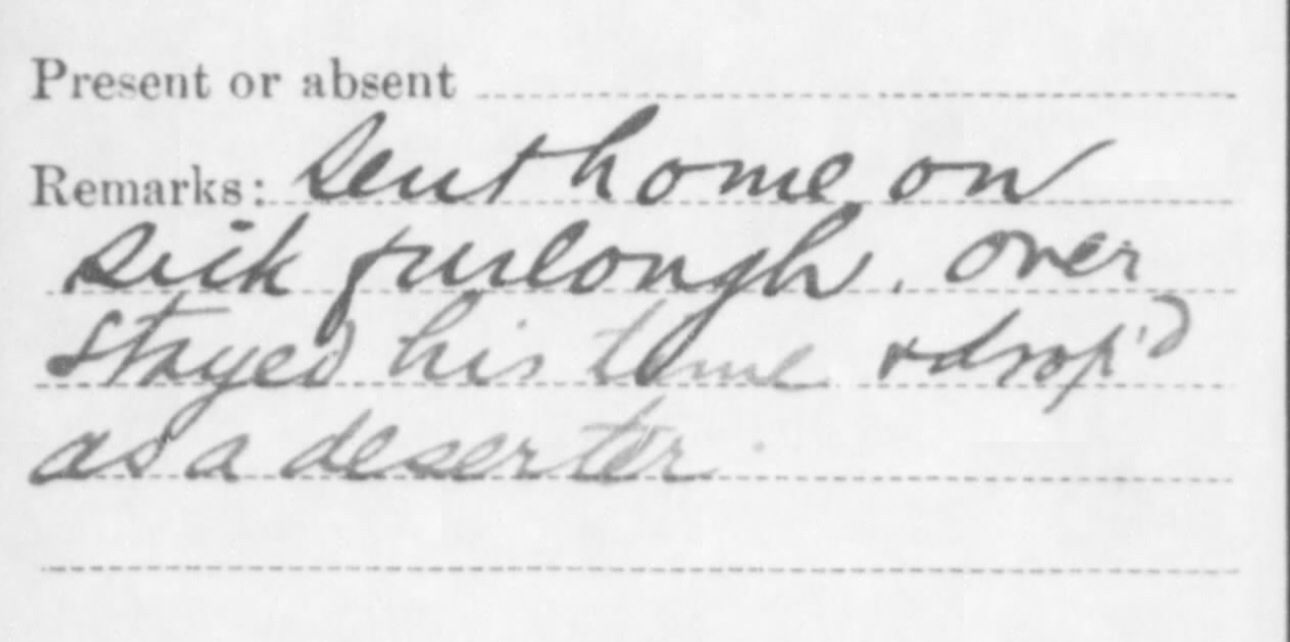 Present or absent
Remarks: Sent home on
sick furlough. over
stayed his time & drop'd
as a deserter.